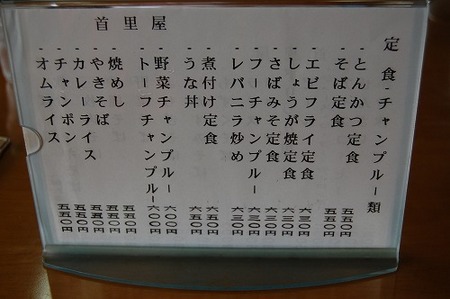 定食・チャンプルー類
・とんかつ定食 五五〇円
・そば定食 六五〇円
・エビフライ定食 六三〇円
・しょうが焼定食 六三〇円
・さばみそ定食 六三〇円
・フーチャンプルー 六三〇円
・レバニラ炒め 六三〇円
・煮付け定食 六五〇円
・うな丼 六五〇円
・野菜チャンプルー 六〇〇円
・トーフチャンプルー 六〇〇円
・焼めし 五五〇円
・やきそば 五五〇円
・カレーライス 五五〇円
・チャンポン 五五〇円
・オムライス 五五〇円
首里屋